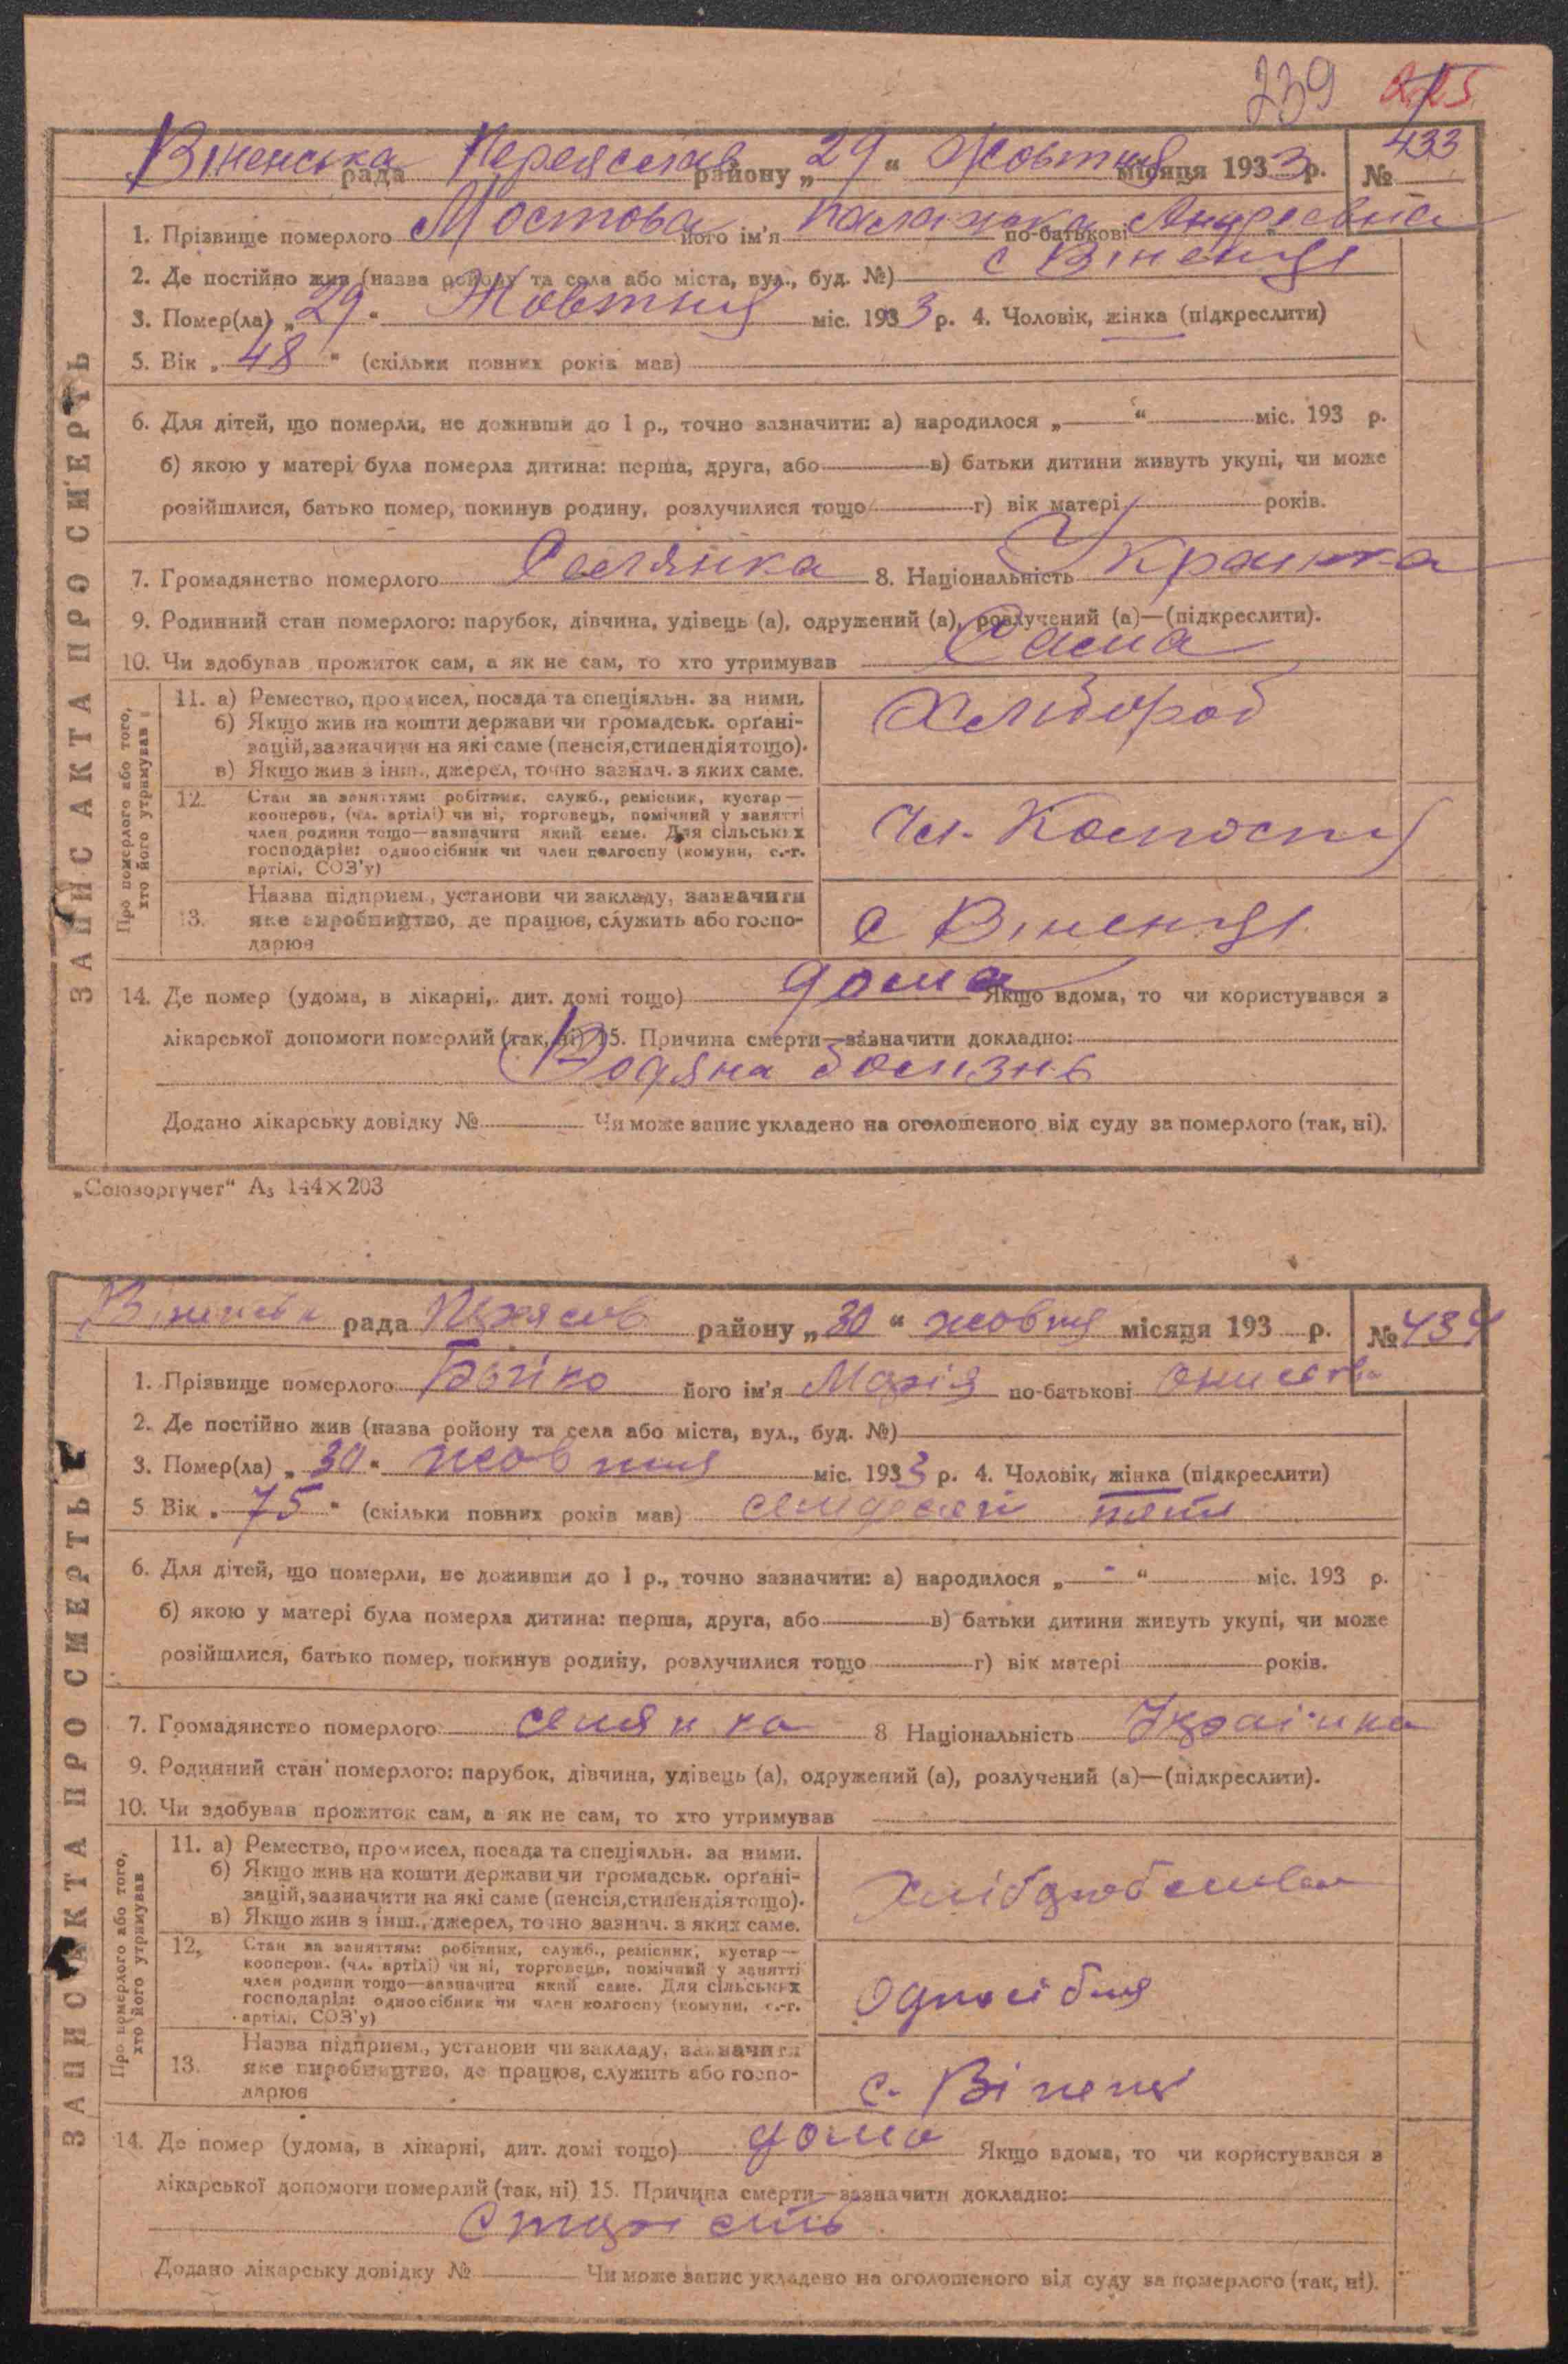 239 225
Віненська рада Переяслав району „29“ Жовтня місяця 1933 р. № 433
1. Прізвище померлого Мостова його ім'я по-батькові Андреевна
2. Де постійно жив (назва ройону та села або міста, вул., буд. №) с Віненці
3. Помер(ла) „29“ Жовтня міс. 1933 р. 4. Чоловік, жінка (підкреслити)
5. Вік „48“ (скільки повних років мав)
6. Для дітей, що померли, не доживши до 1 р., точно зазначити: а) народилося „ “ міс. 193 р.
б) якою у матері була померла дитина: перша, друга, або в) батьки дитини живуть укупі, чи може
розійшлися, батько помер, покинув родину, розлучилися тощо г) вік матері років.
7. Громадянство померлого Селянка 8. Національність Украинка
9. Родинний стан померлого: парубок, дівчина, удівець (а), одружений (а), розлучений (а)—(підкреслити).
10. Чи здобував прожиток сам, а як не сам, то хто утримував Сама
ЗАПИС АКТА ПРО СМЕРТЬ
Про померлого або того, хто його утримував
11. а) Ремество, промисел, посада та спеціяльн. за ними.
б) Якщо жив на кошти держави чи громадськ. орґані-
зацій, зазначити на які саме (пенсія, стипендія тощо).
в) Якщо жив з інш., джерел, точно зазнач. з яких саме.
Хлибороб
12. Стан за заняттям: робітник, служб., ремісник, кустар—
кооперов, (чл. артілі) чи ні, торговець, помічний у занятті
член родини тощо—зазначити який саме. Для сільських
господарів: одноосібник чи член колгоспу (комуни, с.-г.
артілі, СОЗ'у)
Чл. Колгоспу
13. Назва підприєм., установи чи закладу, зазначити
яке виробництво, де працює, служить або госпо-
дарює
с Віненці
14. Де помер (удома, в лікарні, дит. домі тощо) дома Якщо вдома, то чи користувався з
лікарської допомоги померлий (так, ні) 15. Причина смерти—зазначити докладно:
Водяна болизнь
Додано лікарську довідку № Чи може запис укладено на оголошеного від суду за померлого (так, ні).
„Союзоргучет“ А₅ 144×203
рада Переяслов району „30“ жовтня місяця 193 р. № 434
1. Прізвище померлого Бойко його ім'я Марія по-батькові
2. Де постійно жив (назва ройону та села або міста, вул., буд. №)
3. Помер(ла) „30“ жовтня міс. 1933 р. 4. Чоловік, жінка (підкреслити)
5 Вік „75“ (скільки повних років мав) семдесят пять
6. Для дітей, що померли, не доживши до 1 р., точно зазначити: а) народилося „ - “ міс. 193 р.
б) якою у матері була померла дитина: перша, друга, або в) батьки дитини живуть укупі, чи може
розійшлися, батько помер, покинув родину, розлучилися тощо г) вік матері років.
7. Громадянство померлого селянка 8 Національність Українка
9. Родинний стан померлого: парубок, дівчина, удівець (а), одружений (а), розлучений (а)—(підкреслити).
10. Чи здобував прожиток сам, а як не сам, то хто утримував
ЗАПИС АКТА ПРО СМЕРТЬ
Про померлого або того, хто його утримував
11. а) Ремество, промисел, посада та спеціяльн. за ними.
б) Якщо жив на кошти держави чи громадськ. орґані-
зацій, зазначити на які саме (пенсія, стипендія тощо).
в) Якщо жив з інш., джерел, точно зазнач. з яких саме.
12, Стан за заняттям: робітник, служб., ремісник, кустар—
кооперов. (чл. артілі) чи ні, торговець, помічний у занятті
член родини тощо—зазначити який саме. Для сільських
господарів: одноосібник чи член колгоспу (комуни, с.-г.
артілі, СОЗ'у)
13. Назва підприєм., установи чи закладу, зазначити
яке виробництво, де працює, служить або госпо-
дарює
с. Віненці
14. Де помер (удома, в лікарні, дит. домі тощо) дома Якщо вдома, то чи користувався з
лікарської допомоги померлий (так, ні) 15. Причина смерти—зазначити докладно:
Старість
Додано лікарську довідку № Чи може запис укладено на оголошеного від суду за померлого (так, ні).